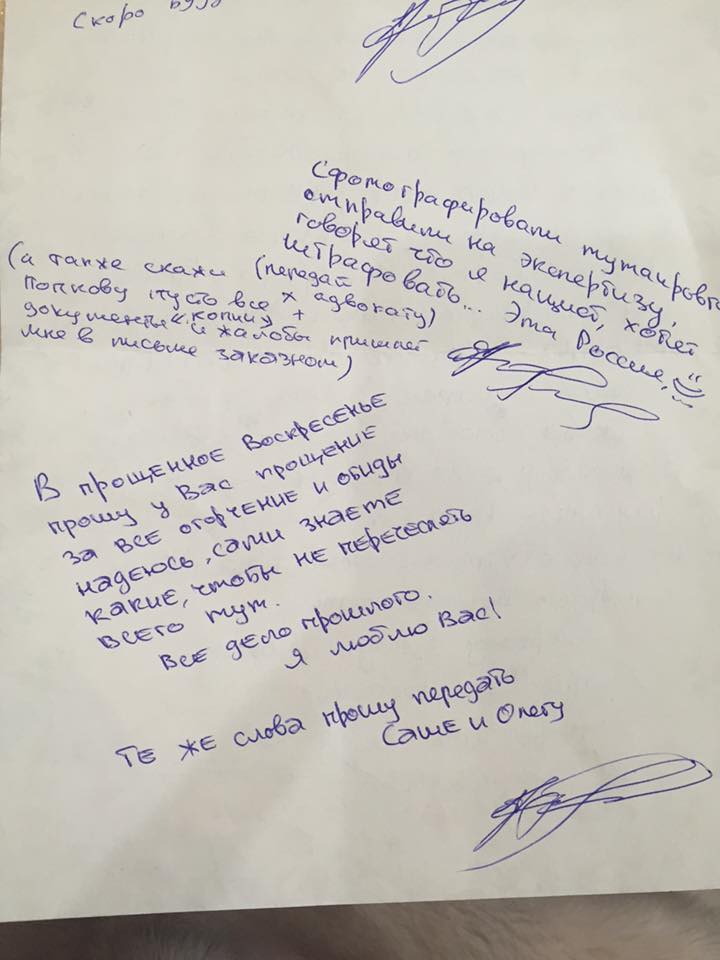 Скоро буду
Сфотографировали тутаировки
отправили на экспертизу,
говорят что я нацист, хотят
штрафовать... Эта Россия,
(а также скажи (передай
Попкову пусть все x адвокату)
документы "копии" +
и жалобы пришлет
мне в письме заказном)
В прощенное Воскресенье
прошу у Вас прощение
за все огорчение и обиды
надеюсь, сами знаете
какие, чтобы не перечеслять
всего тут.
Все дело прошлого.
Я люблю Вас!
Те же слова прошу передать
Саше и Олегу